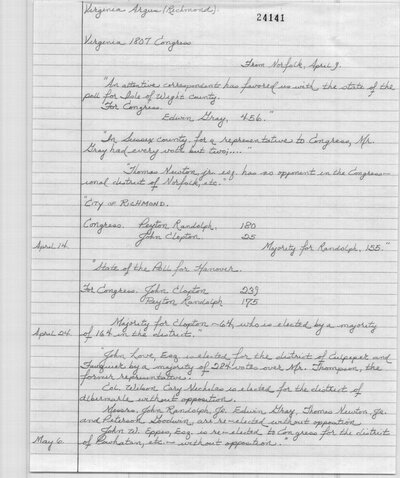 Virginia Argus (Richmond).
24141
Virginia 1807 Congress
From Norfolk, April 9.
"An attentive correspondent has favored us with the state of the
poll for Isle of Wight County.
For Congress.
Edwin Gray, 456."
"In Sussex County, for a representative to Congress, Mr.
Gray had every vote but two;....."
"Thomas Newton, jr. esq. has no opponent in the Congress-
ional district of Norfolk, etc."
"CITY OF RICHMOND.
Congress. Peyton Randolph. 180
John Clopton 25
April 14. Majority for Randolph, 155."
"State of the Poll for Hanover.
For Congress. John Clopton 239
Peyton Randolph 175
Majority for Clopton -64, who is elected by a majority
April 24. of 164 in the district."
"John Love, Esq. is elected for the district of Culpeper and
Fauquier by a majority of 284 votes over Mr. Thompson, the
former representative.
Col. Wilson Cary Nicholas is elected for the district of
Albemarle without opposition.
Messrs. John Randolph, Jr. Edwin Gray, Thomas Newton Jr.
and Peterson Goodwin, are re-elected without opposition
John W. Eppes, Esq. is re-elected to Congress for the district
May 6. of Powhatan, etc.- without opposition."